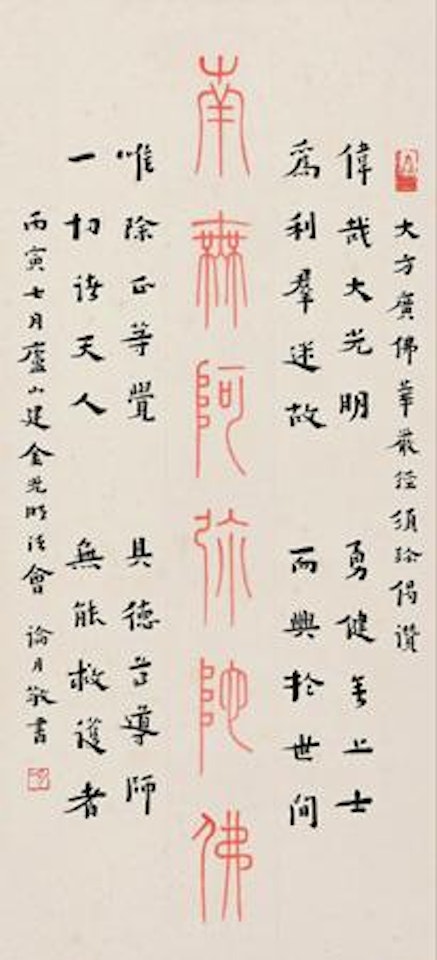 大方廣佛華嚴經須弥偈讚
偉哉大光明 勇健無上士
爲利羣迷故 而興於世間
南無阿弥陀佛
唯除正等覺 具德尊導師
一切諸天人 無能救護者
丙寅七月廬山建金光明法會 論月敬書